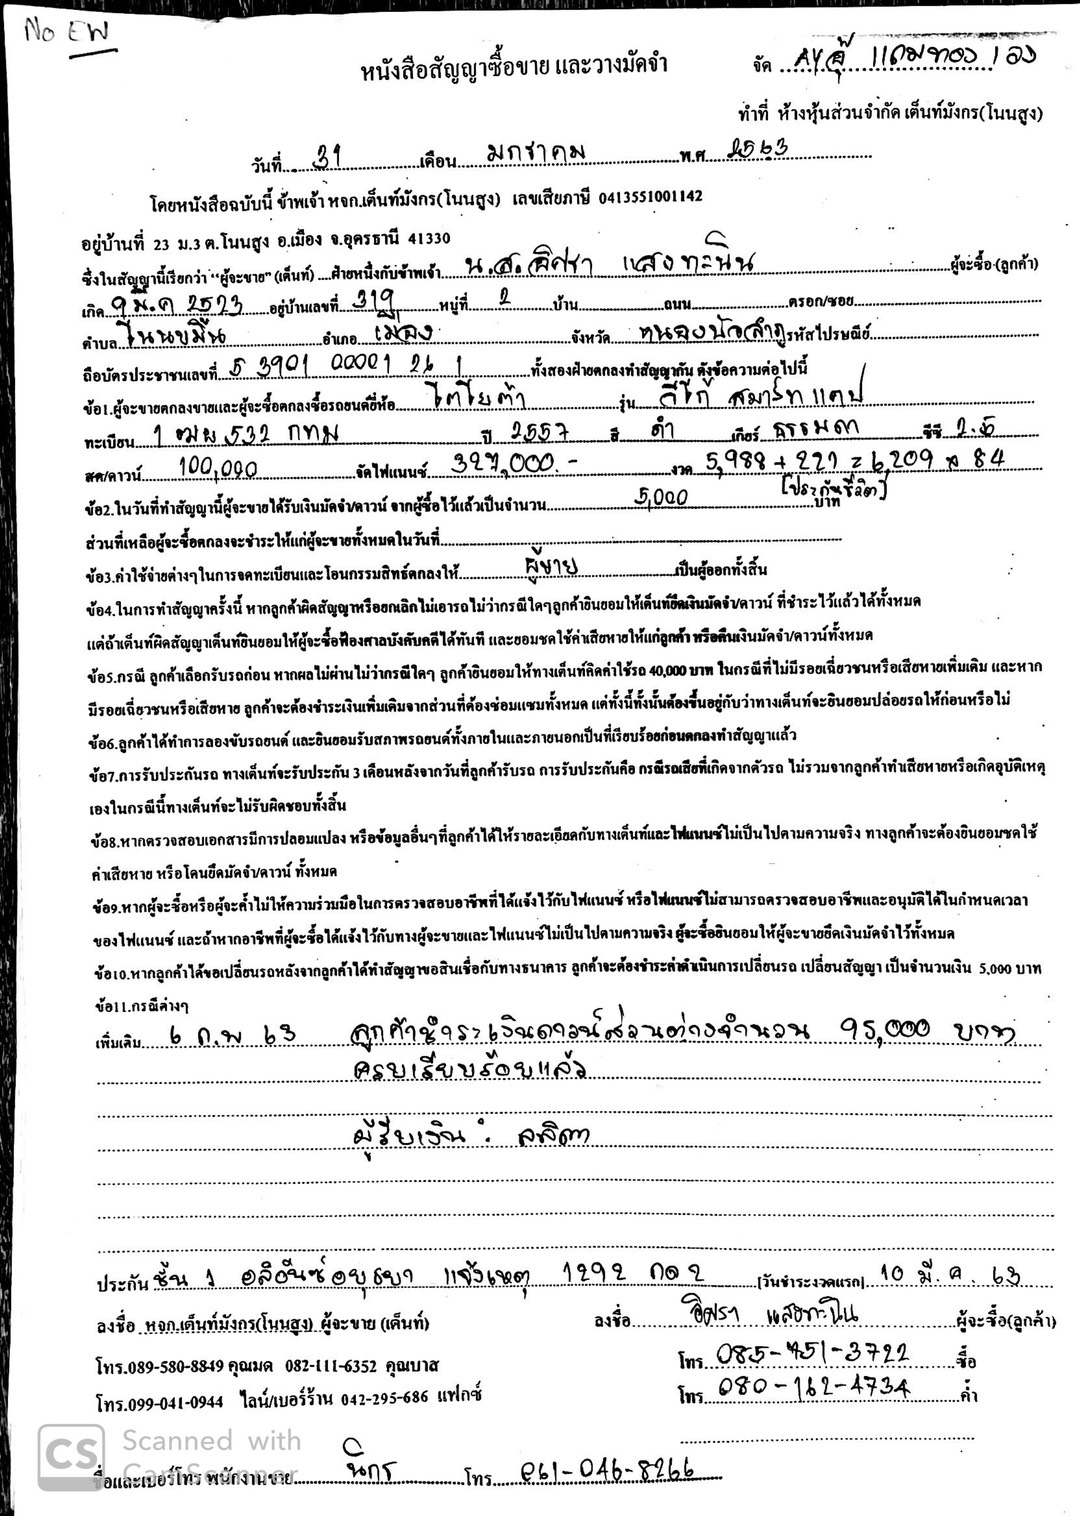 No EW
หนังสือสัญญาซื้อขาย และวางมัดจำ
จัด AY อุ๊ แถมทอง 1 สลึง
ทำที่ ห้างหุ้นส่วนจำกัด เต็นท์มังกร(โนนสูง)
วันที่ 31 เดือน มกราคม พ.ศ 2563
โดยหนังสือฉบับนี้ ข้าพเจ้า หจก.เต็นท์มังกร(โนนสูง) เลขเสียภาษี 0413551001142
อยู่บ้านที่ 23 ม.3 ต.โนนสูง อ.เมือง จ.อุดรธานี 41330
ซึ่งในสัญญานี้เรียกว่า "ผู้จะขาย" (เต็นท์) ....ฝ่ายหนึ่งกับข้าพเจ้า น.ส. แสงทะนิน ผู้จะซื้อ (ลูกค้า)
เกิด 9 มี.ค 2523 อยู่บ้านเลขที่ 319 หมู่ที่ 2 บ้าน ถนน ตรอก/ซอย
ตำบล โนนขมิ้น อำเภอ เมือง จังหวัด หนองบัวลำภู รหัสไปรษณีย์
ถือบัตรประชาชนเลขที่ 5 3901 00001 26 1 ทั้งสองฝ่ายตกลงทำสัญญากัน ดังข้อความต่อไปนี้
ข้อ1.ผู้จะขายตกลงขายและผู้จะซื้อตกลงซื้อรถยนต์ยี่ห้อ โตโยต้า รุ่น วีโก้ สมาร์ทแคป
ทะเบียน 1 ฒผ 532 กทม ปี 2557 สี ดำ เกียร์ ธรรมดา ซีซี 2.5
สด/ดาวน์ 100,000 จัดไฟแนนซ์ 327,000.- งวด 5,988 + 221 = 6,209 x 84
[ประกันชีวิต]
ข้อ2.ในวันที่ทำสัญญานี้ผู้จะขายได้รับเงินมัดจำ/ดาวน์ จากผู้ซื้อไว้แล้วเป็นจำนวน 5,000 บาท
ส่วนที่เหลือผู้จะซื้อตกลงจะชำระให้แก่ผู้จะขายทั้งหมดในวันที่
ข้อ3.ค่าใช้จ่ายต่างๆในการจดทะเบียนและโอนกรรมสิทธ์ตกลงให้ ผู้ขาย เป็นผู้ออกทั้งสิ้น
ข้อ4.ในการทำสัญญาครั้งนี้ หากลูกค้าผิดสัญญาหรือยกเลิกไม่เอารถไม่ว่ากรณีใดๆลูกค้ายินยอมให้เต็นท์ยึดเงินมัดจำ/ดาวน์ ที่ชำระไว้แล้วได้ทั้งหมด
แต่ถ้าเต็นท์ผิดสัญญาเต็นท์ยินยอมให้ผู้จะซื้อฟ้องศาลบังคับคดีได้ทันที และยอมชดใช้ค่าเสียหายให้แก่ลูกค้า หรือคืนเงินมัดจำ/ดาวน์ทั้งหมด
ข้อ5.กรณี ลูกค้าเลือกรับรถก่อน หากผลไม่ผ่านไม่ว่ากรณีใดๆ ลูกค้ายินยอมให้ทางเต็นท์คิดค่าใช้รถ 40,000 บาท ในกรณีที่ไม่มีรอยเฉี่ยวชนหรือเสียหายเพิ่มเติม และหาก
มีรอยเฉี่ยวชนหรือเสียหาย ลูกค้าจะต้องชำระเงินเพิ่มเติมจากส่วนที่ต้องซ่อมแซมทั้งหมด แต่ทั้งนี้ทั้งนั้นต้องขึ้นอยู่กับว่าทางเต็นท์จะยินยอมปล่อยรถให้ก่อนหรือไม่
ข้อ6.ลูกค้าได้ทำการลองขับรถยนต์ และยินยอมรับสภาพรถยนต์ทั้งภายในและภายนอกเป็นที่เรียบร้อยก่อนตกลงทำสัญญาแล้ว
ข้อ7.การรับประกันรถ ทางเต็นท์จะรับประกัน 3 เดือนหลังจากวันที่ลูกค้ารับรถ การรับประกันคือ กรณีรถเสียที่เกิดจากตัวรถ ไม่รวมจากลูกค้าทำเสียหายหรือเกิดอุบัติเหตุ
เองในกรณีนี้ทางเต็นท์จะไม่รับผิดชอบทั้งสิ้น
ข้อ8.หากตรวจสอบเอกสารมีการปลอมแปลง หรือข้อมูลอื่นๆที่ลูกค้าได้ให้รายละเอียดกับทางเต็นท์และไฟแนนซ์ไม่เป็นไปตามความจริง ทางลูกค้าจะต้องยินยอมชดใช้
ค่าเสียหาย หรือโดนยึดมัดจำ/ดาวน์ ทั้งหมด
ข้อ9.หากผู้จะซื้อหรือผู้จะค้ำไม่ให้ความร่วมมือในการตรวจสอบอาชีพที่ได้แจ้งไว้กับไฟแนนซ์ หรือไฟแนนซ์ไม่สามารถตรวจสอบอาชีพและอนุมัติได้ในกำหนดเวลา
ของไฟแนนซ์ และถ้าหากอาชีพที่ผู้จะซื้อได้แจ้งไว้กับทางผู้จะขายและไฟแนนซ์ไม่เป็นไปตามความจริง ผู้จะซื้อยินยอมให้ผู้จะขายยึดเงินมัดจำไว้ทั้งหมด
ข้อ10.หากลูกค้าได้ขอเปลี่ยนรถหลังจากลูกค้าได้ทำสัญญาขอสินเชื่อกับทางธนาคาร ลูกค้าจะต้องชำระค่าดำเนินการเปลี่ยนรถ เปลี่ยนสัญญา เป็นจำนวนเงิน 5,000 บาท
ข้อ11.กรณีต่างๆ
เพิ่มเติม 6 ก.พ 63 ลูกค้าชำระเงินดาวน์ส่วนต่างจำนวน 95,000 บาท
ครบเรียบร้อยแล้ว
ผู้รับเงิน : ลลิตา
ประกัน ชั้น 1 อลิอันซ์อยุธยา แจ้งเหตุ 1292 กด 2 [วันชำระงวดแรก] 10 มี.ค. 63
ลงชื่อ หจก.เต็นท์มังกร(โนนสูง) ผู้จะขาย (เต็นท์) ลงชื่อ แสงทะนิน ผู้จะซื้อ(ลูกค้า)
โทร.089-580-8849 คุณมด 082-111-6352 คุณบาส โทร. 085-451-3722 ซื้อ
โทร.099-041-0944 ไลน์/เบอร์ร้าน 042-295-686 แฟกซ์ โทร. 080-162-4734 ค้ำ
CS Scanned with
CamScanner
ชื่อและเบอร์โทร พนักงานขาย นิกร โทร. 061-046-8266